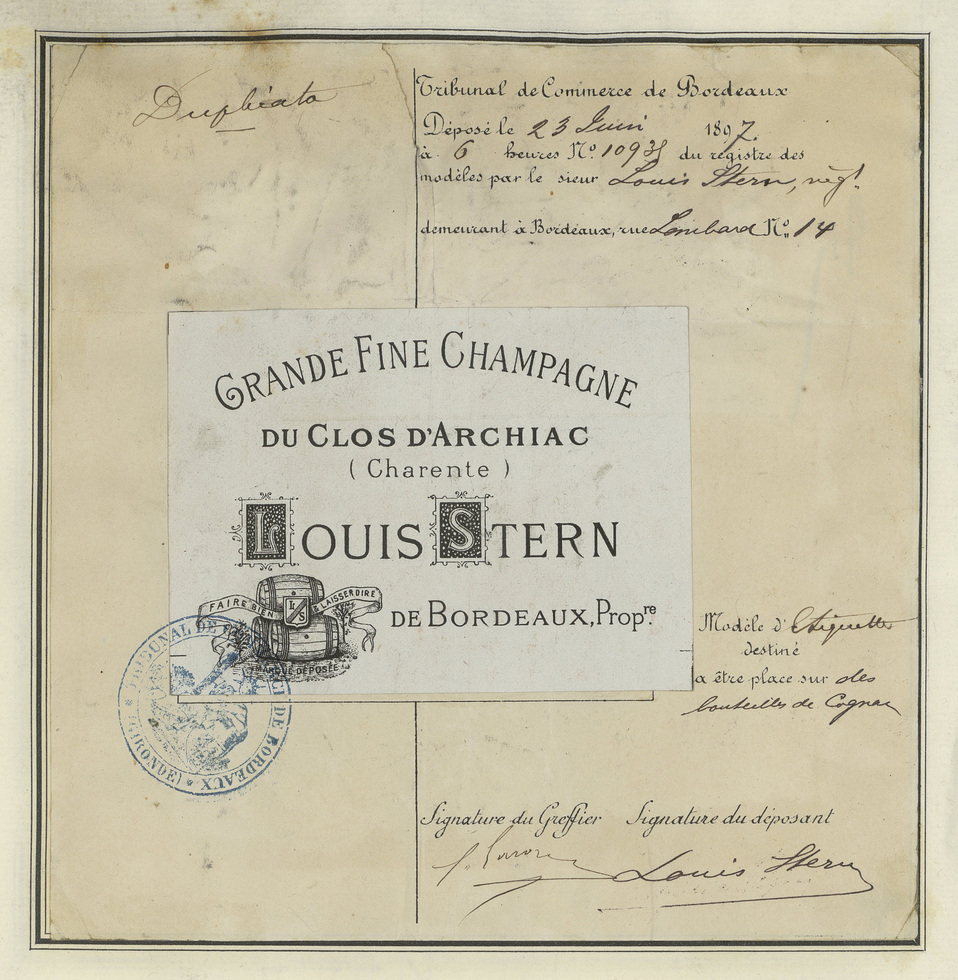 Duplicata
Tribunal de Commerce de Bordeaux
Déposé le 23 Juin 1897
à 6 heures N° du registre des
modèles par le sieur Louis Stern, négt.
demeurant à Bordeaux, rue Lombard N° 14
GRANDE FINE CHAMPAGNE
DU CLOS D'ARCHIAC
(Charente)
LOUIS STERN
FAIRE BIEN & LAISSER DIRE
LS
DE BORDEAUX, Propre.
MARQUE DÉPOSÉE
TRIBUNAL DE DE BORDEAUX
(GIRONDE)
Modèle d'Etiquette
destiné
a être place sur des
bouteilles de Cognac
Signature du Greffier Signature du déposant
Louis Stern